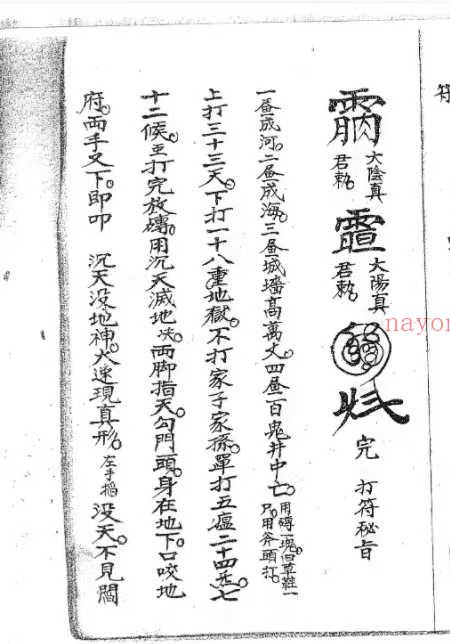 符
大陰真君勅 大陽真君勅 完 打符秘旨
一昼成河。二昼成海。三昼城墻高萬丈。四昼百鬼井中亡。用磚一塊。草鞋一只。用斧頭打。
上打三十三天。下打一十八重地獄。不打家子家孫。單打五瘟二十四炁。七
十二候。至打完放磚。用沉天滅地决。両脚指天。勾門頭。身在地下。口咬地
府。両手叉下。即叩 沉天没地神。火速現真形。左手掐 没天。不見閻
nayon